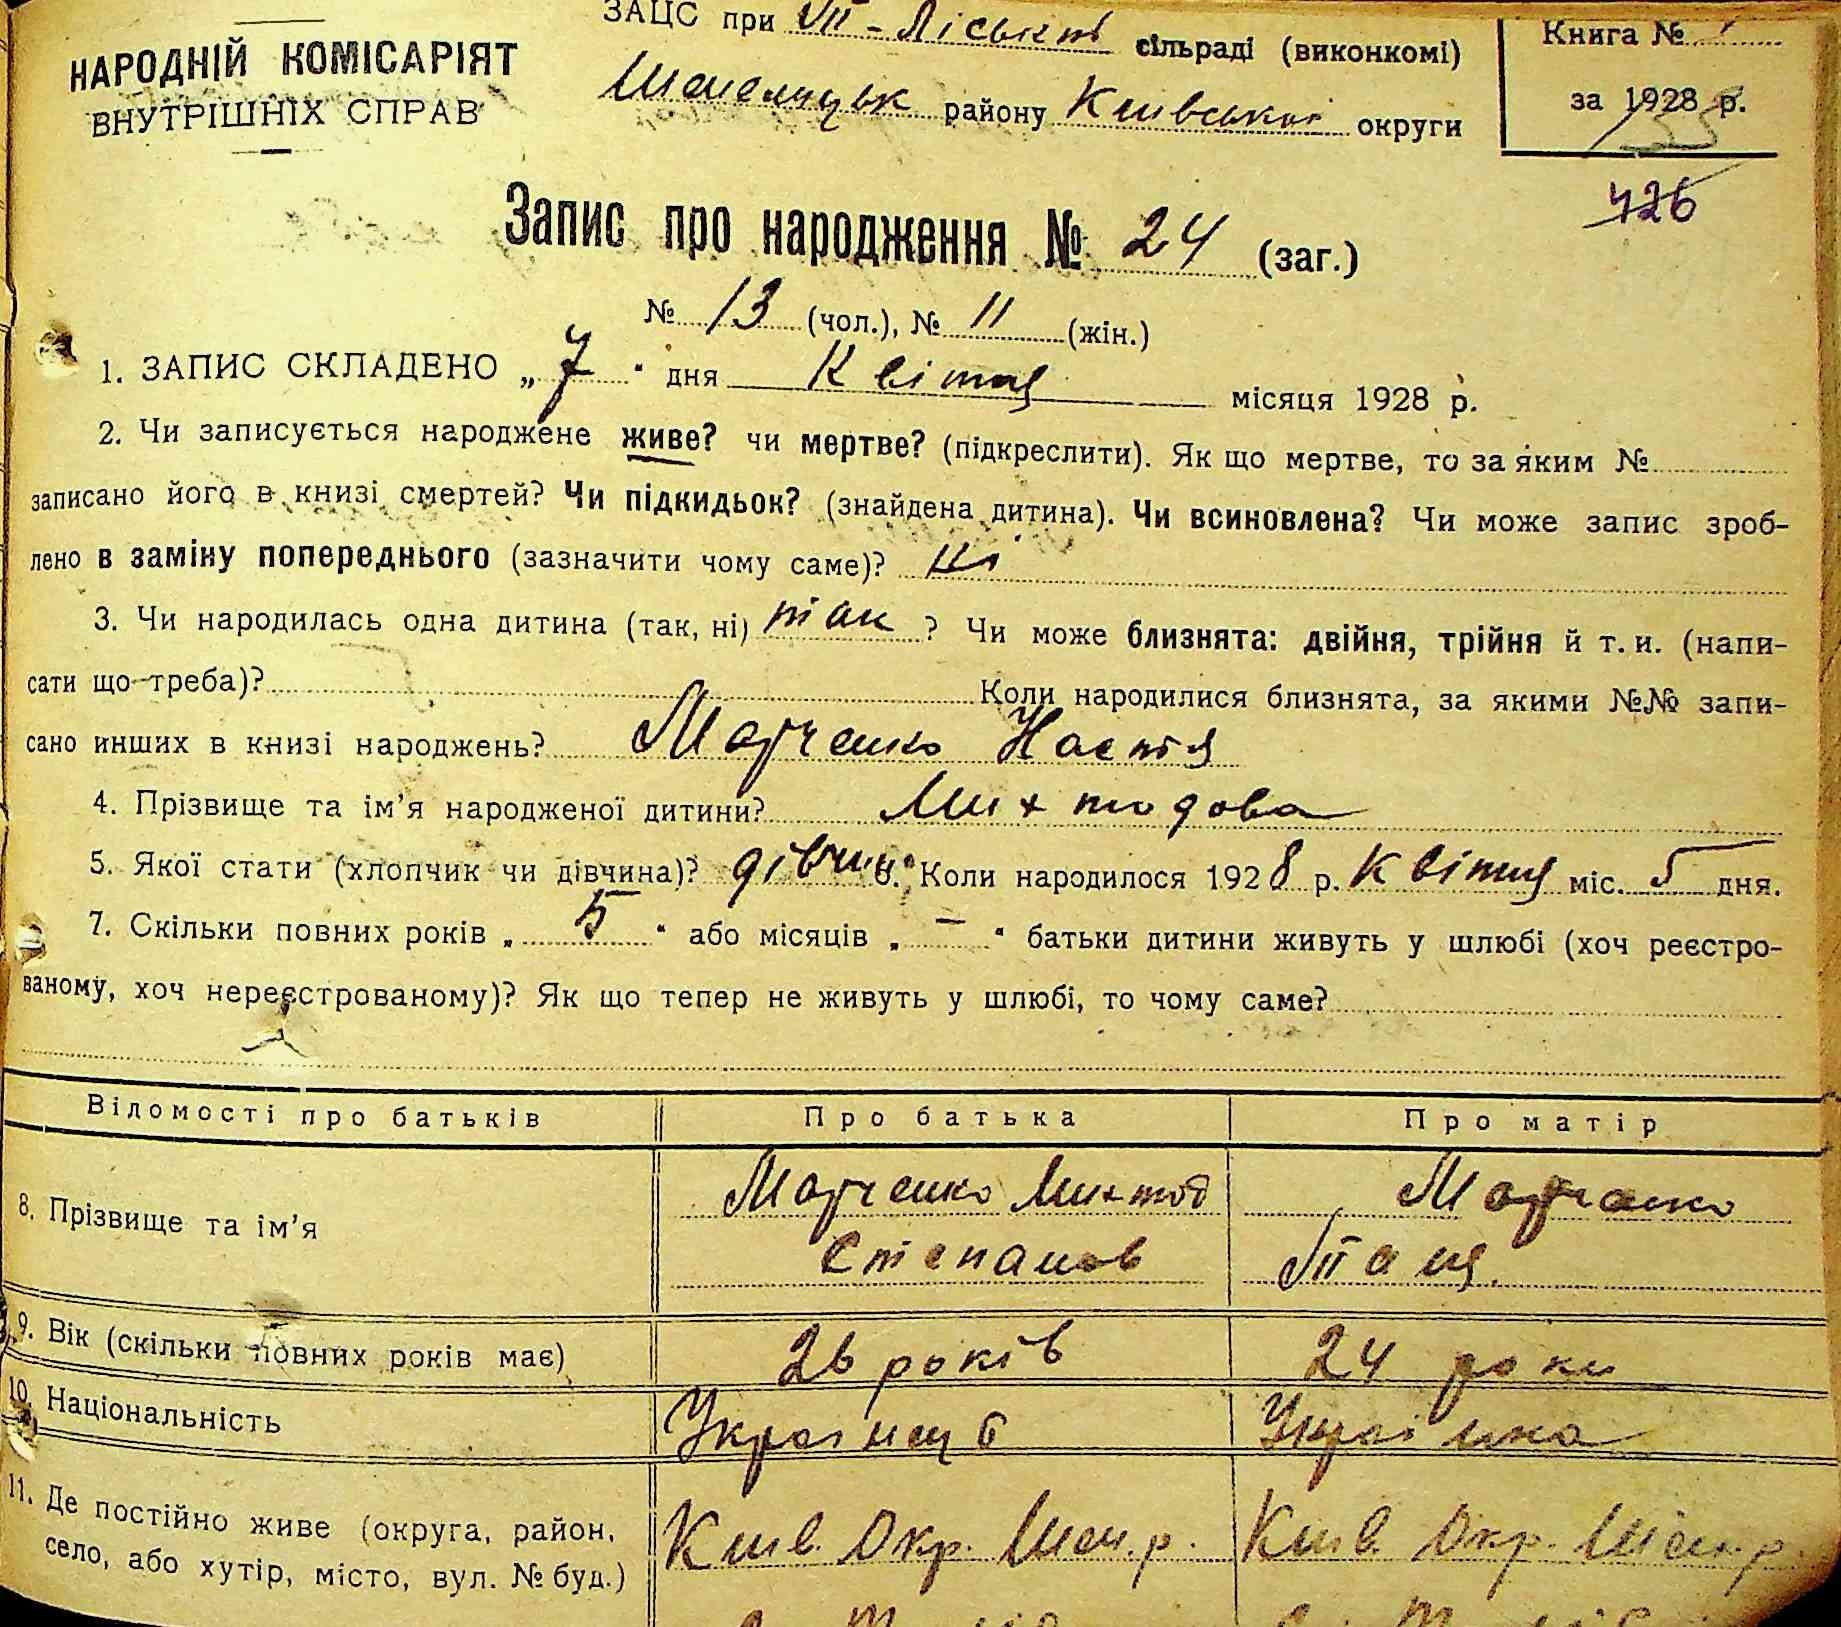 НАРОДНІЙ КОМІСАРІЯТ
ВНУТРІШНІХ СПРАВ
ЗАЦС при сільраді (виконкомі)
району Київської округи
Книга №
за 1928 р.
426
Запис про народження № 24 (заг.)
№ 13 (чол.), № 11 (жін.)
1. ЗАПИС СКЛАДЕНО „ 7 " дня Квітня місяця 1928 р.
2. Чи записується народжене живе? чи мертве? (підкреслити). Як що мертве, то за яким №
записано його в книзі смертей? Чи підкидьок? (знайдена дитина). Чи всиновлена? Чи може запис зроб-
лено в заміну попереднього (зазначити чому саме)? ні
3. Чи народилась одна дитина (так, ні) так ? Чи може близнята: двійня, трійня й т. и. (напи-
сати що треба)? Коли народилися близнята, за якими №№ запи-
сано инших в книзі народжень? Марченко Настя
4. Прізвище та ім'я народженої дитини? Михтодова
5. Якої стати (хлопчик чи дівчина)? дівчин. Коли народилося 1928 р. Квітня міс. 5 дня.
7. Скільки повних років „ 5 " або місяців „ — " батьки дитини живуть у шлюбі (хоч реєстро-
ваному, хоч нереєстрованому)? Як що тепер не живуть у шлюбі, то чому саме?
Відомості про батьків Про батька Про матір
8. Прізвище та ім'я Марченко Михтод Марченко
Степанов Таня.
9. Вік (скільки повних років має) 26 років 24 роки
10. Національність Українець Українка
11. Де постійно живе (округа, район, Київ. Окр. р. Київ. Окр. р.
село, або хутір, місто, вул. № буд.)